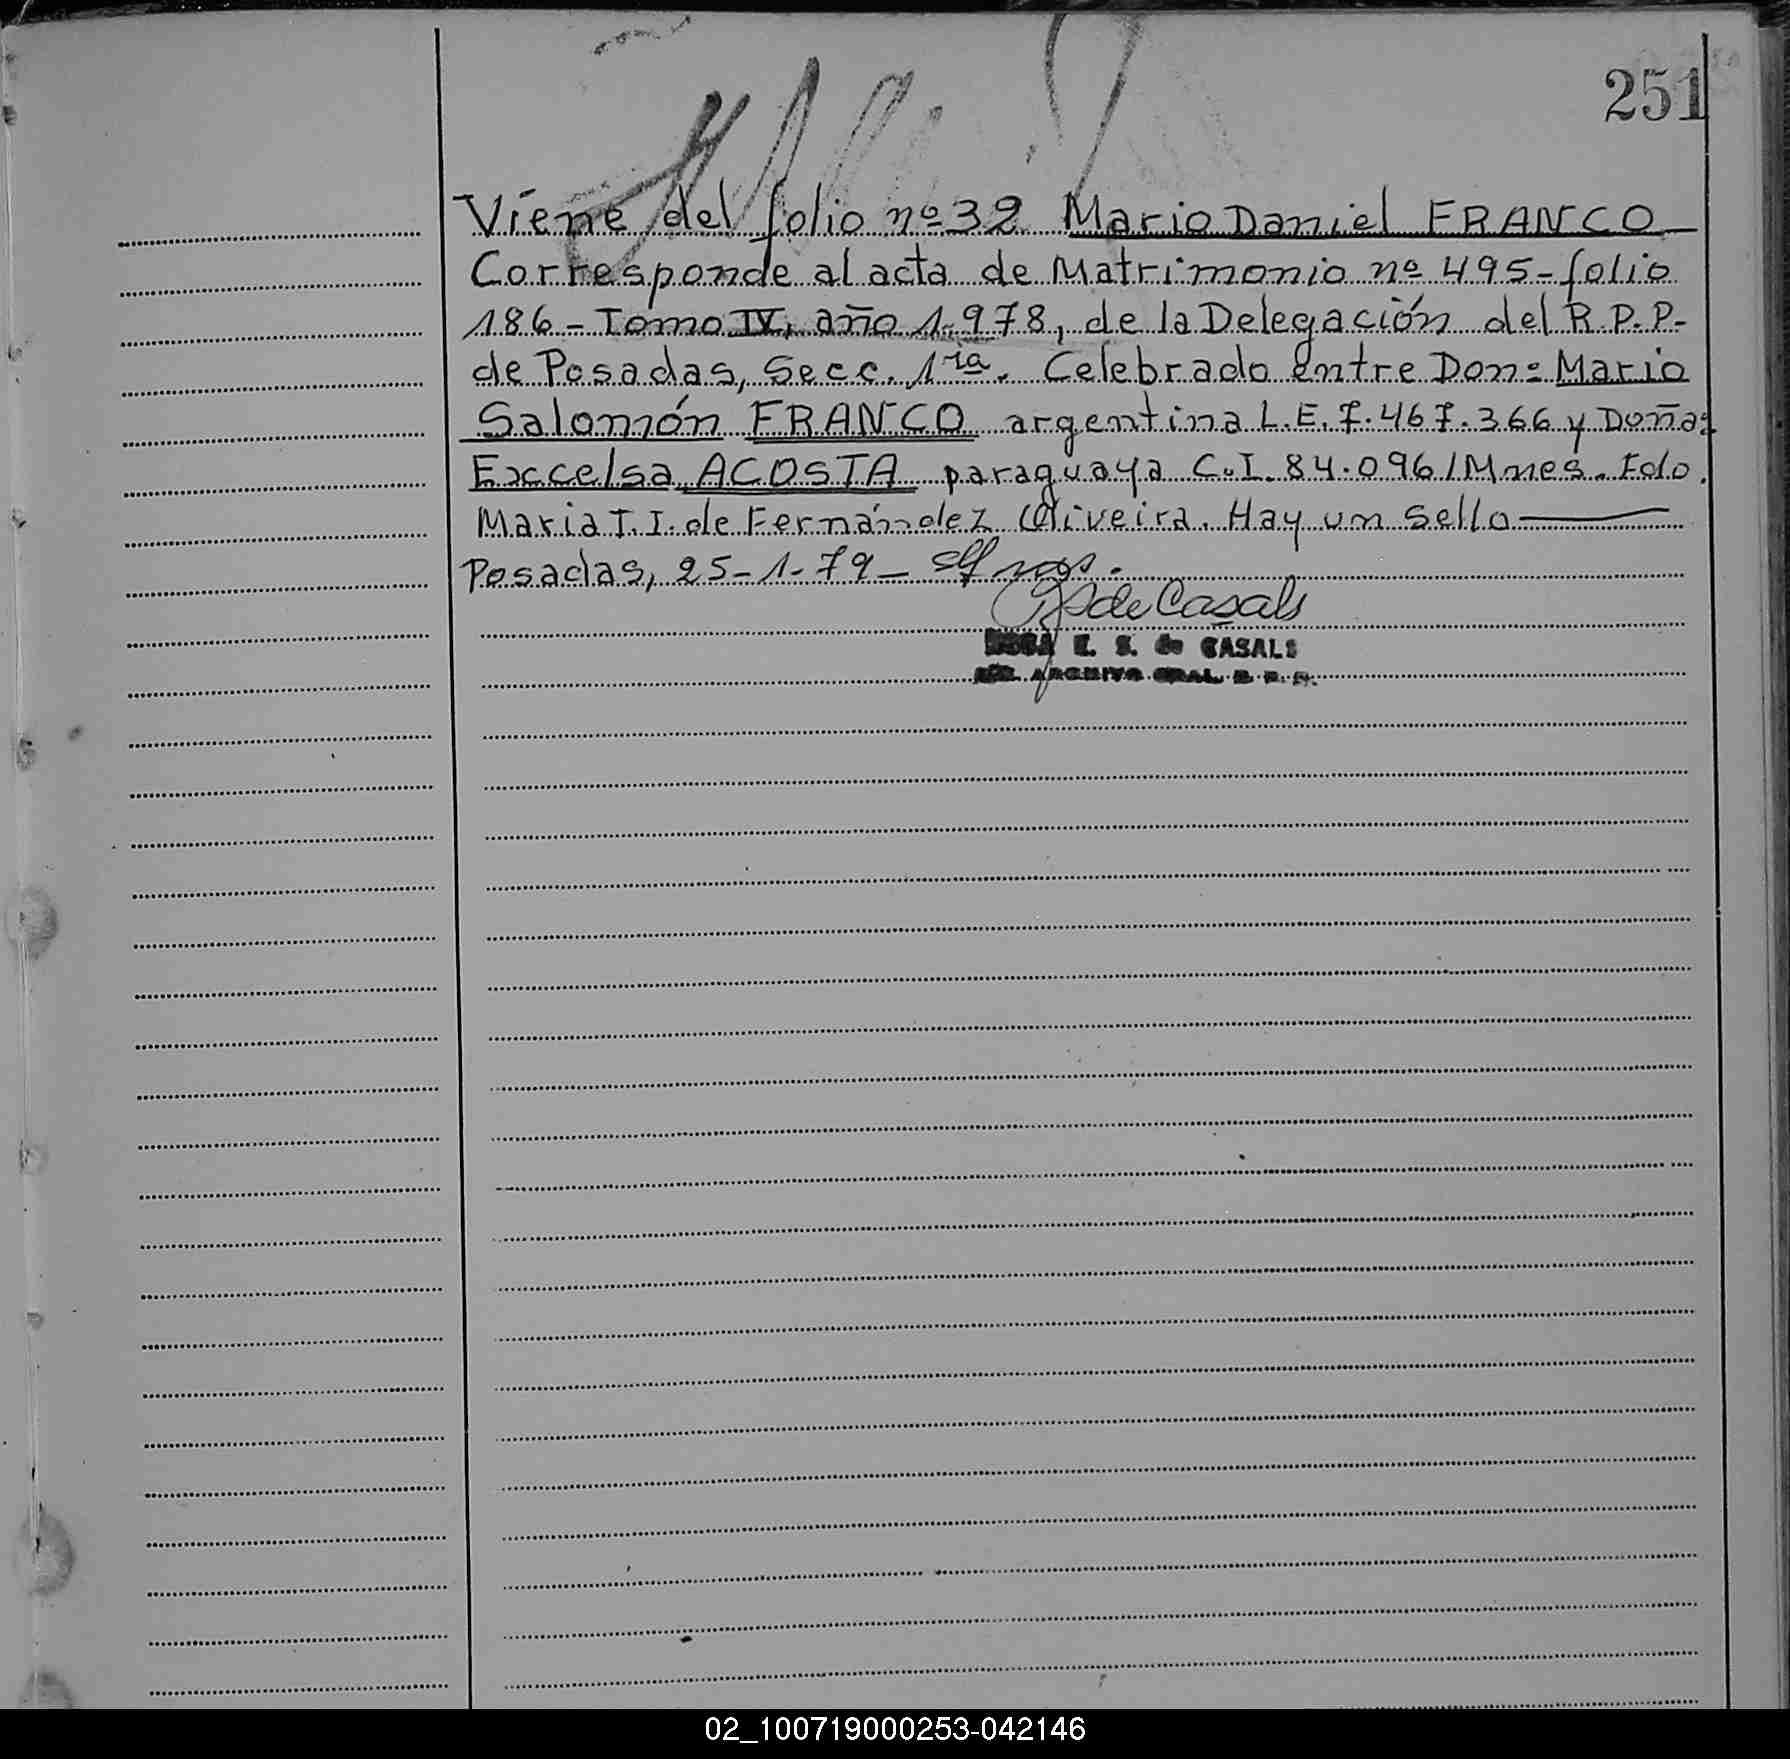 251
Viene del folio nº 32 Mario Daniel FRANCO
Corresponde al acta de Matrimonio nº 495-folio
186-Tomo IV, año 1.978, de la Delegación del R.P.P.
de Posadas, Secc. 1ra. Celebrado entre Don: Mario
Salomón FRANCO argentina L.E. 7.467.366 y Doña:
Excelsa ACOSTA paraguaya C.I. 84.096/Mnes. Fdo.
Maria I. I. de Fernández Oliveira. Hay un Sello
Posadas, 25-1-79-
de Casals
E. S. de CASALS
ARCHIVO GRAL.
02_100719000253-042146